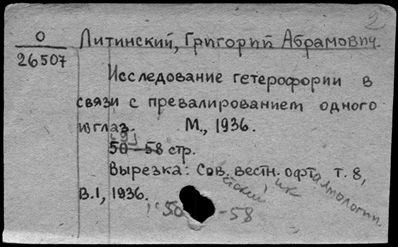 2
О
26507
Литинский, Григорий Абрамович.
Исследование гетерофории в
связи с превалированием одного
из глаз. М., 1936.
[9]
50-58 стр.
Вырезка: Сов. вестн. офта т. 8,
в.1, 1936.
етский ик альмологии.
50 -58